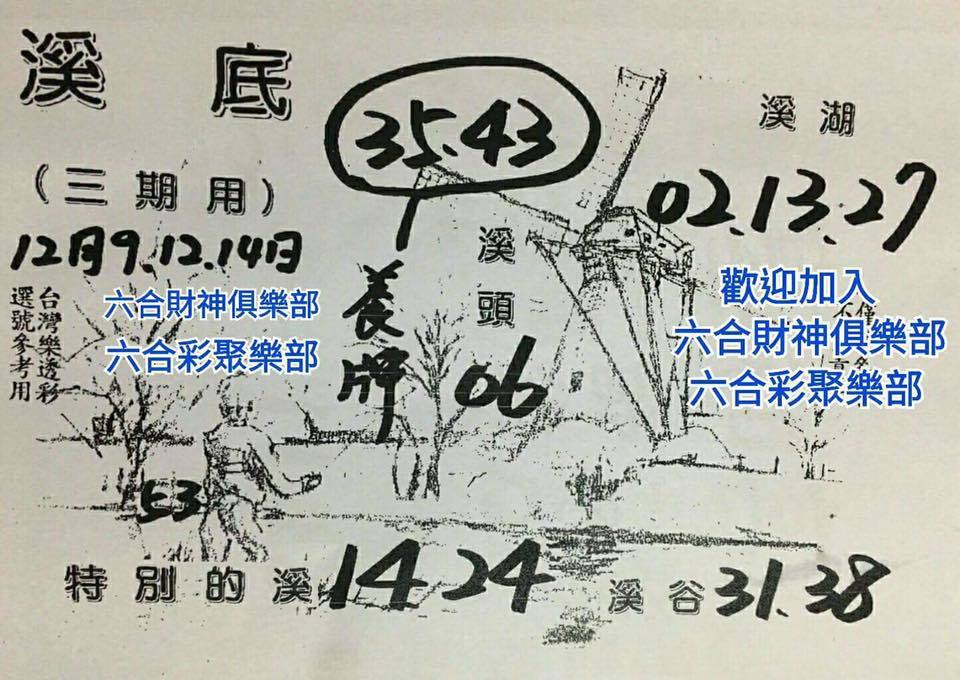 溪底
35.43
溪湖
(三期用)
02.13.27
12月9.12.14日
溪頭
06
養牌
台灣樂透彩
選號參考用
六合財神俱樂部
六合彩聚樂部
歡迎加入
六合財神俱樂部
六合彩聚樂部
53
特別的溪 14 24
溪谷 31.38